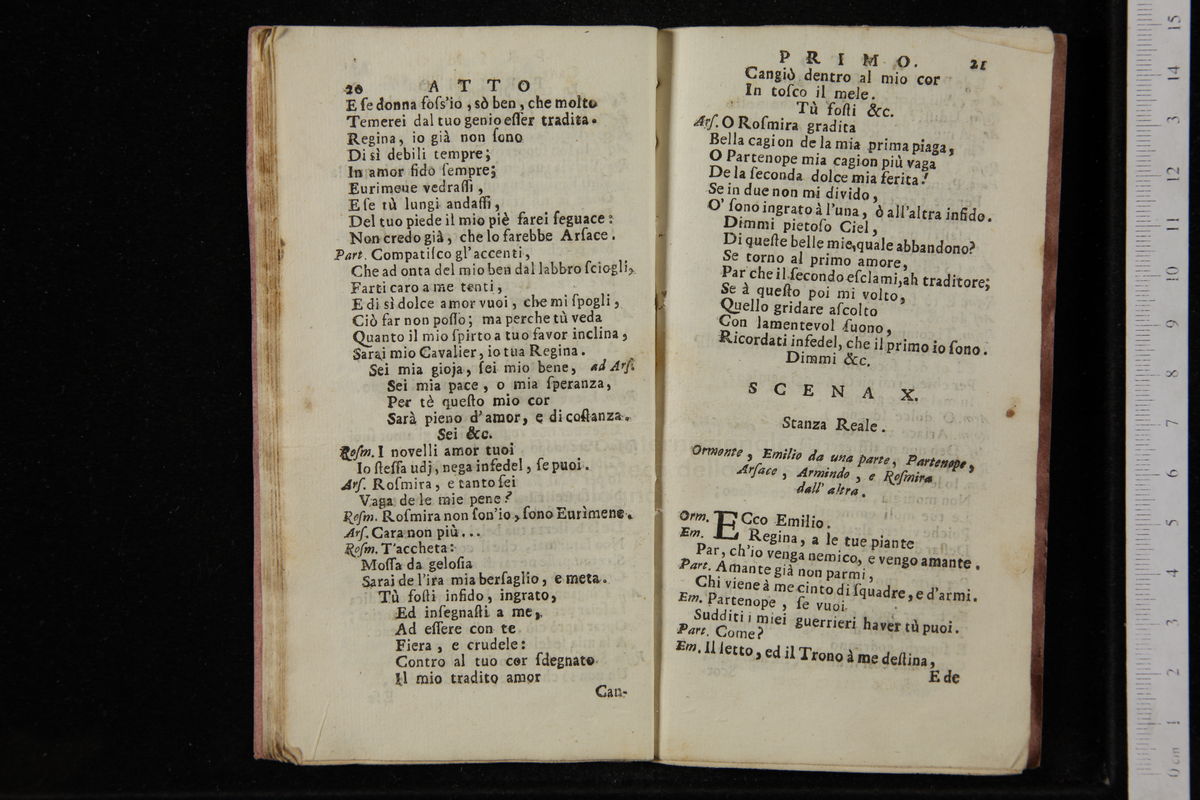 20 ATTO
E ſe donna foſs'io, sò ben, che molto
Temerei dal tuo genio eſſer tradita.
Regina, io già non ſono
Di sì debili tempre;
In amor fido ſempre;
Eurimene vedraſſi,
E ſe tù lungi andaſſi,
Del tuo piede il mio piè farei ſeguace:
Non credo già, che lo farebbe Arſace.
Part. Compatiſco gl'accenti,
Che ad onta del mio ben dal labbro ſciogli,
Farti caro a me tenti,
E di sì dolce amor vuoi, che mi ſpogli,
Ciò far non poſſo; ma perche tù veda
Quanto il mio ſpirto a tuo favor inclina,
Sarai mio Cavalier, io tua Regina.
Sei mia gioja, ſei mio bene, ad Arſ.
Sei mia pace, o mia ſperanza,
Per tè queſto mio cor
Sarà pieno d'amor, e di coſtanza.
Sei &c.
Roſm. I novelli amor tuoi
Io ſteſſa udj, nega infedel, ſe puoi.
Arſ. Roſmira, e tanto ſei
Vaga de le mie pene?
Roſm. Roſmira non ſon'io, ſono Eurimene.
Arſ. Cara non più...
Roſm. T'accheta:
Moſſa da geloſia
Sarai de l'ira mia berſaglio, e meta.
Tù foſti infido, ingrato,
Ed inſegnaſti a me,
Ad eſſere con te
Fiera, e crudele:
Contro al tuo cor ſdegnato
Il mio tradito amor
Can-
PRIMO. 21
Cangiò dentro al mio cor
In toſco il mele.
Tù foſti &c.
Arſ. O Roſmira gradita
Bella cagion de la mia prima piaga,
O Partenope mia cagion più vaga
De la ſeconda dolce mia ferita!
Se in due non mi divido,
O' ſono ingrato à l'una, ò all'altra infido.
Dimmi pietoſo Ciel,
Di queſte belle mie, quale abbandono?
Se torno al primo amore,
Par che il ſecondo eſclami, ah traditore;
Se à queſto poi mi volto,
Quello gridare aſcolto
Con lamentevol ſuono,
Ricordati infedel, che il primo io ſono.
Dimmi &c.
SCENA X.
Stanza Reale.
Ormonte, Emilio da una parte, Partenope,
Arſace, Armindo, e Roſmira
dall' altra.
Orm. ECco Emilio.
Em. Regina, a le tue piante
Par, ch'io venga nemico, e vengo amante.
Part. Amante già non parmi,
Chi viene à me cinto di ſquadre, e d'armi.
Em. Partenope, ſe vuoi
Sudditi i miei guerrieri haver tù puoi.
Part. Come?
Em. Il letto, ed il Trono à me deſtina,
E de
0 cm 1 2 3 4 5 6 7 8 9 10 11 12 13 14 15